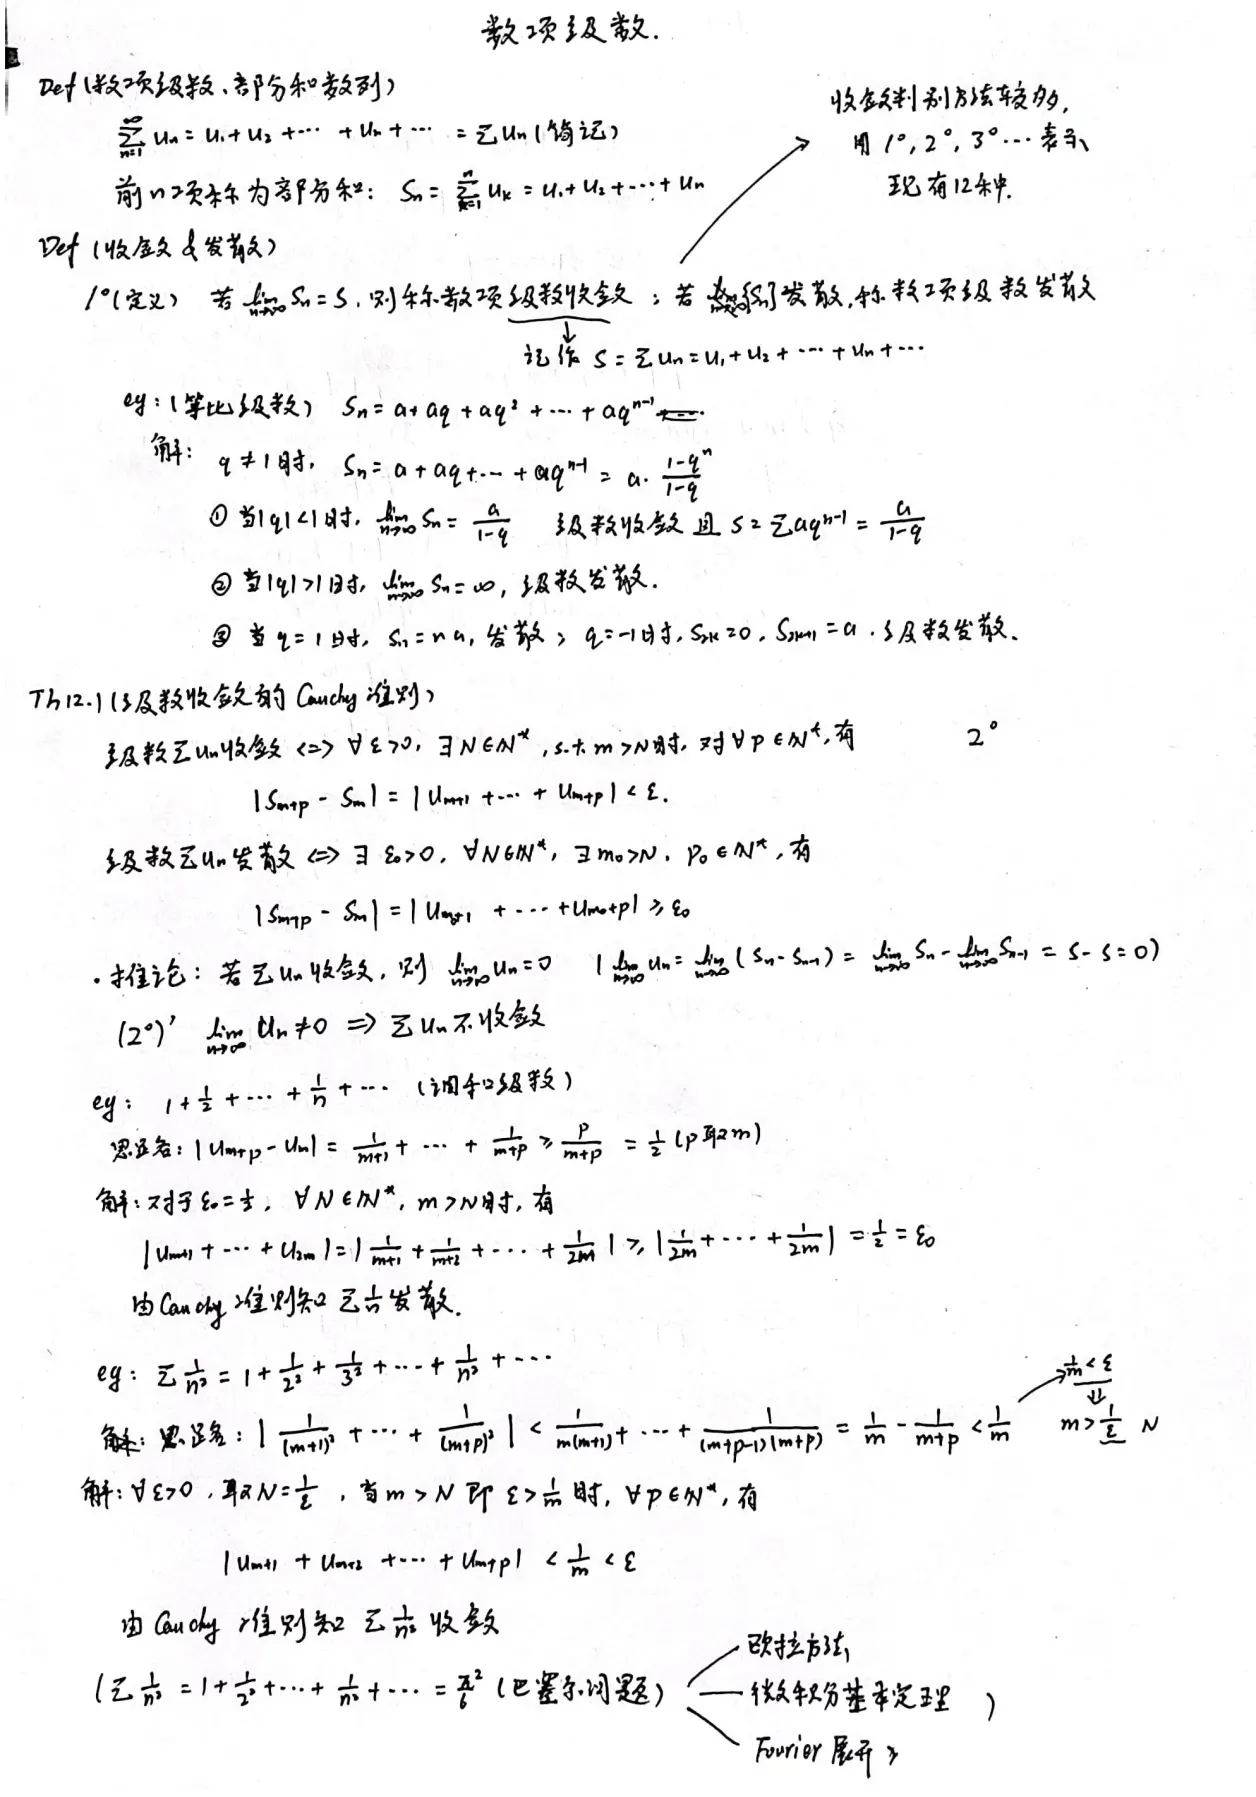 数项级数.
Def (数项级数、部分和数列)
∑_{n=1}^{∞} uₙ = u₁ + u₂ + ⋯ + uₙ + ⋯ = ∑uₙ (简记)
前n项称为部分和: Sₙ = ∑_{k=1}^{n} uₖ = u₁ + u₂ + ⋯ + uₙ
收敛判别方法较多,
用 1°, 2°, 3° ⋯ 表示
现有12种.
Def (收敛 & 发散)
1° (定义) 若 lim_{n→∞} Sₙ = S, 则称数项级数收敛; 若 {Sₙ} 发散, 称数项级数发散
记作 S = ∑uₙ = u₁ + u₂ + ⋯ + uₙ + ⋯
eg: (等比级数) Sₙ = a + aq + aq² + ⋯ + aqⁿ⁻¹
解: q ≠ 1 时, Sₙ = a + aq + ⋯ + aqⁿ⁻¹ = a · (1-qⁿ)/(1-q)
① 当|q|<1时, lim_{n→∞} Sₙ = a/(1-q) 级数收敛且 S = ∑aqⁿ⁻¹ = a/(1-q)
② 当|q|>1时, lim_{n→∞} Sₙ = ∞, 级数发散.
③ 当 q = 1 时, Sₙ = na, 发散; q = -1时, S_{2k} = 0, S_{2k+1} = a. 级数发散.
Th12.1 (级数收敛的 Cauchy 准则)
级数∑uₙ收敛 <=> ∀ε>0, ∃N∈N*, s.t. m>N时, 对∀p∈N*, 有 2°
|S_{m+p} - S_m| = |u_{m+1} + ⋯ + u_{m+p}| < ε.
级数∑uₙ发散 <=> ∃ ε₀>0, ∀N∈N*, ∃m₀>N, p₀∈N*, 有
|S_{m+p} - S_m| = |u_{m₀+1} + ⋯ + u_{m₀+p}| ≥ ε₀
· 推论: 若∑uₙ收敛, 则 lim_{n→∞} uₙ = 0 ( lim_{n→∞} uₙ = lim_{n→∞} (Sₙ - Sₙ₋₁) = lim_{n→∞} Sₙ - lim_{n→∞} Sₙ₋₁ = S - S = 0)
(2°)' lim_{n→∞} uₙ ≠ 0 => ∑uₙ不收敛
eg: 1 + 1/2 + ⋯ + 1/n + ⋯ (调和级数)
思路: |u_{m+p} - u_m| = 1/(m+1) + ⋯ + 1/(m+p) ≥ p/(m+p) = 1/2 (p取m)
解: 对于 ε₀ = 1/2, ∀N∈N*, m>N时, 有
|u_{m+1} + ⋯ + u_{2m}| = | 1/(m+1) + 1/(m+2) + ⋯ + 1/2m | ≥ | 1/2m + ⋯ + 1/2m | = 1/2 = ε₀
由Cauchy准则知 ∑1/n 发散.
eg: ∑1/n² = 1 + 1/2² + 1/3² + ⋯ + 1/n² + ⋯
思路: | 1/(m+1)² + ⋯ + 1/(m+p)² | < 1/(m(m+1)) + ⋯ + 1/((m+p-1)(m+p)) = 1/m - 1/(m+p) < 1/m
1/m < ε
⇓
m > 1/ε N
解: ∀ε>0, 取N = 1/ε, 当 m > N 即 ε > 1/m 时, ∀p∈N*, 有
|u_{m+1} + u_{m+2} + ⋯ + u_{m+p}| < 1/m < ε
由 Cauchy 准则知 ∑1/n² 收敛
(∑1/n² = 1 + 1/2² + ⋯ + 1/n² + ⋯ = π²/6 (巴塞尔问题)
欧拉方法
微积分基本定理 )
Fourier 展开